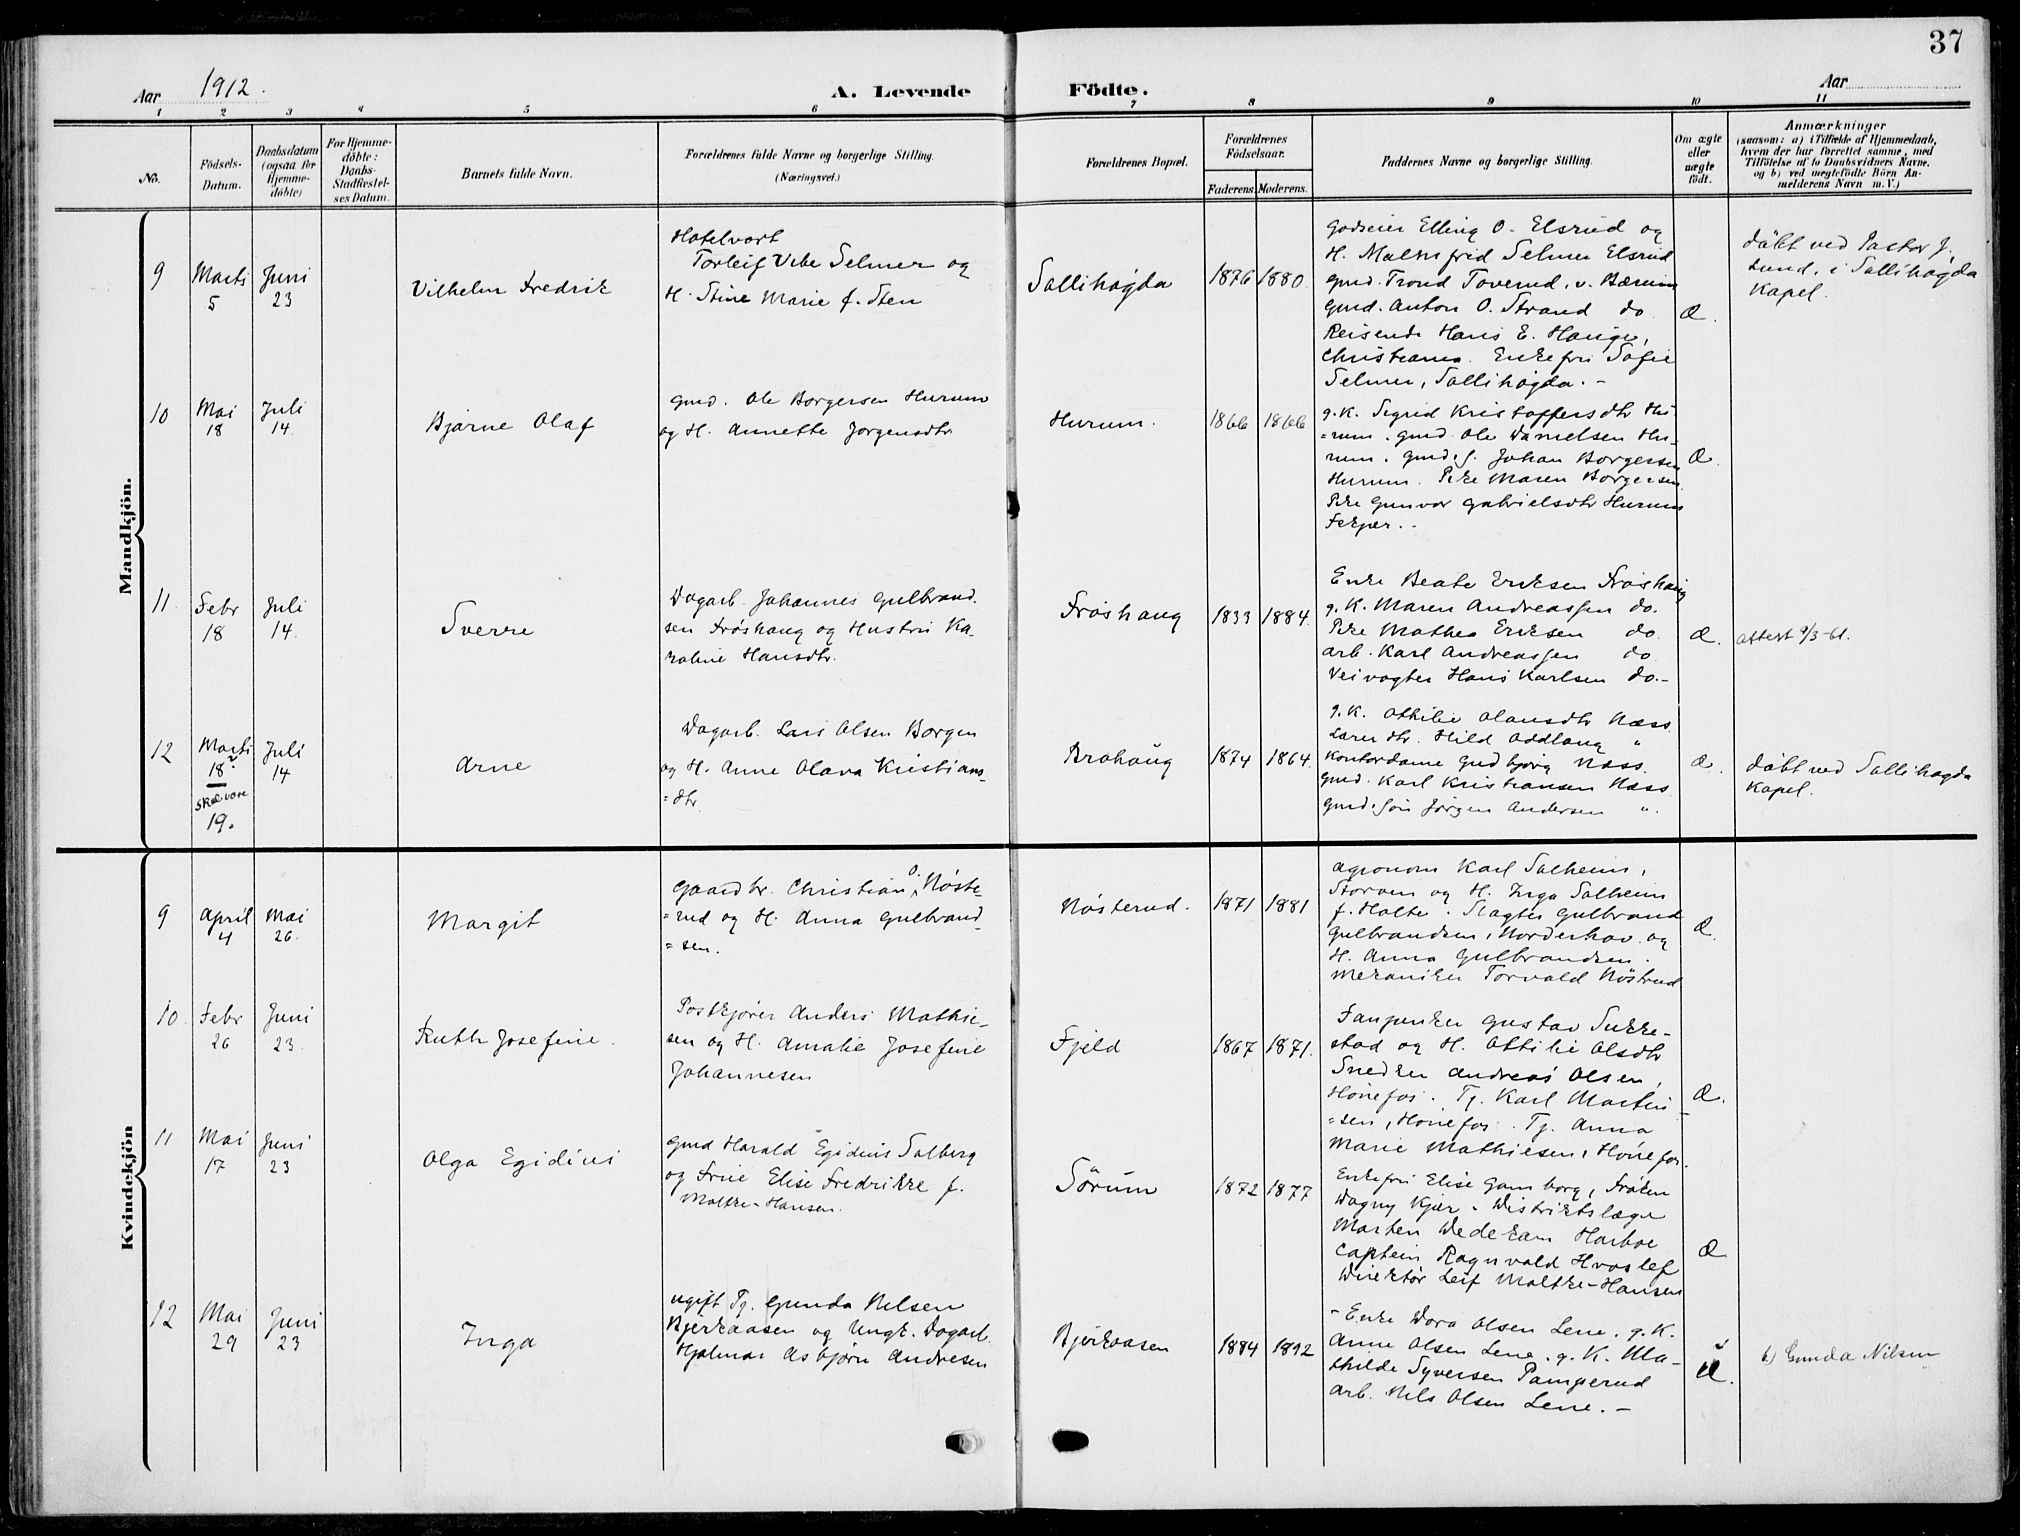 37
Aar 1912.
A. Levende Födte.
Aar
1 2 3 4 5 6 7 8 9 10 11
No.
Födsels-
Datum.
Daabsdatum
(ogsaa for
Hjemme-
döbte)
For Hjemme-
döbte:
Daabs-
Stadfæstel-
ses Datum.
Barnets fulde Navn.
Forældrenes fulde Navne og borgerlige Stilling.
(Næringsvei.)
Forældrenes Bopæl.
Forældrenes
Födselsaar.
Faderens. Moderens.
Faddernes Navne og borgerlige Stilling.
Om ægte
eller
uægte
födt.
Anmærkninger
(saasom: a) i Tilfælde af Hjemmedaab,
hvem der har forrettet samme, med
Tilföielse af to Daabsvidners Navne,
og b) ved uægtefödte Börn An-
melderens Navn m. V.)
Mandkjön.
9
Marts
5
Juni
23
Vilhelm Fredrik
Hotelvært
Torleif Vibe Selmer og
H. Stine Marie f. Sten
Sollihøgda
1876 1880.
Godseier Elling O. Elsrud og
H. Malmfrid Selmer Elsrud
Gmd. Trond Toverud, v. Bærum
Gmd. Anton O. Strand do.
Reisende Hans E. Hauge,
Christiania. Enkefru Sofie
Selmer, Sollihøgda. -
Æ.
døbt ved Pastor J.
Lund, i Sollihøgda
Kapel.
10
Mai
18
Juli
14.
Bjarne Olaf
Gmd. Ole Borgersen Hurum
og H. Annette Jorgensdtr.
Hurum.
1866 1866
g.K. Sigrid Kristoffersdtr Hu-
=rum. Gmd. Ole Danielsen Hu-
rum. Gmd.s. Johan Borgersen
Hurum. Pike Maren Borgersen
Pike Gunvor Gabrielsdtr Hurum
Æ.
11.
Febr
18
Juli
14.
Sverre
Dagarb. Johannes Gulbrand-
sen Frøshaug og Hustru Ka-
roline Hansdtr.
Frøshaug
1833 1884.
Enke Beate Eriksen Frøshaug
g.K. Maren Andreassen do.
Pike Mathea Eriksen do.
arb. Karl Andreassen do
Veivogter Hans Karlsen do.-
Æ.
attest 9/3-61.
12
Marts
18?
skal være
19.
Juli
14
Arne
Dagarb. Lars Olsen Borgen
og H. Anne Olava Kristians-
=dtr.
Brahaug
1874 1864.
g.K. Othilie Olausdtr Næss
Lærerdtr. Hild Oddlaug "
Kontordame Gudbjorg Næss.
Gmd. Karl Kristiansen Næss
Gmd. søn Jørgen Andersen ".
Æ.
døbt ved Sollihøgda
Kapel.
Kvindekjön
9
April
4
Mai
26.
Margit
Gaardbr. Christian O. Nøste-
=rud og H. Anna Gulbrand-
=sen.
Nøsterud.
1871 1881
Agronom Karl Solheim,
Storøen og H. Inga Solheim
f. Holte. Slagter Gulbrand
Gulbrandsen, Norderhov og
H. Anna Gulbrandsen.
Mekaniker Torvald Nøstrud
Æ.
10.
Febr
26
Juni
23.
Ruth Josefine.
Postkjører Anders Mathie-
sen og H. Amalie Josefine
Johannesen
Fjeld
1867 1871.
Gustav Sukke-
stad og H. Othilie Olsdtr
Snedker Andreas Olsen,
Hønefos. Tj. Karl Martin-
=sen, Hønefos. Tj. Anna
Marie Mathiesen, Hønefos.
Æ.
11
Mai
17
Juni
23
Olga Egidius
Gmd Harald Egidius Solberg
og Frue Elise Fredrikke f.
Moltke-Hansen.
Sørum
1872 1877
Enkefru Elise Gamborg, Frøken
Dagny Kjær. Distriktslæge
Morten Wedekam Harboe
Captein Ragnvald Hvoslef
Direktør Leif Moltke-Hansen
Æ
12
Mai
29
Juni
23
Inga
ugift Tj. Gunda Nilsen
Bjerkaasen og Ungk. Dagarb.
Hjalmar Asbjørn Andresen
Bjerkaasen
1884 1892
- Enke Dora Olsen Lene. g.K.
Anne Olsen Lene. g.K. Ma-
thilde Syversen Pamperud
arb. Nils Olsen Lene. -
U.
b) Gunda Nilsen